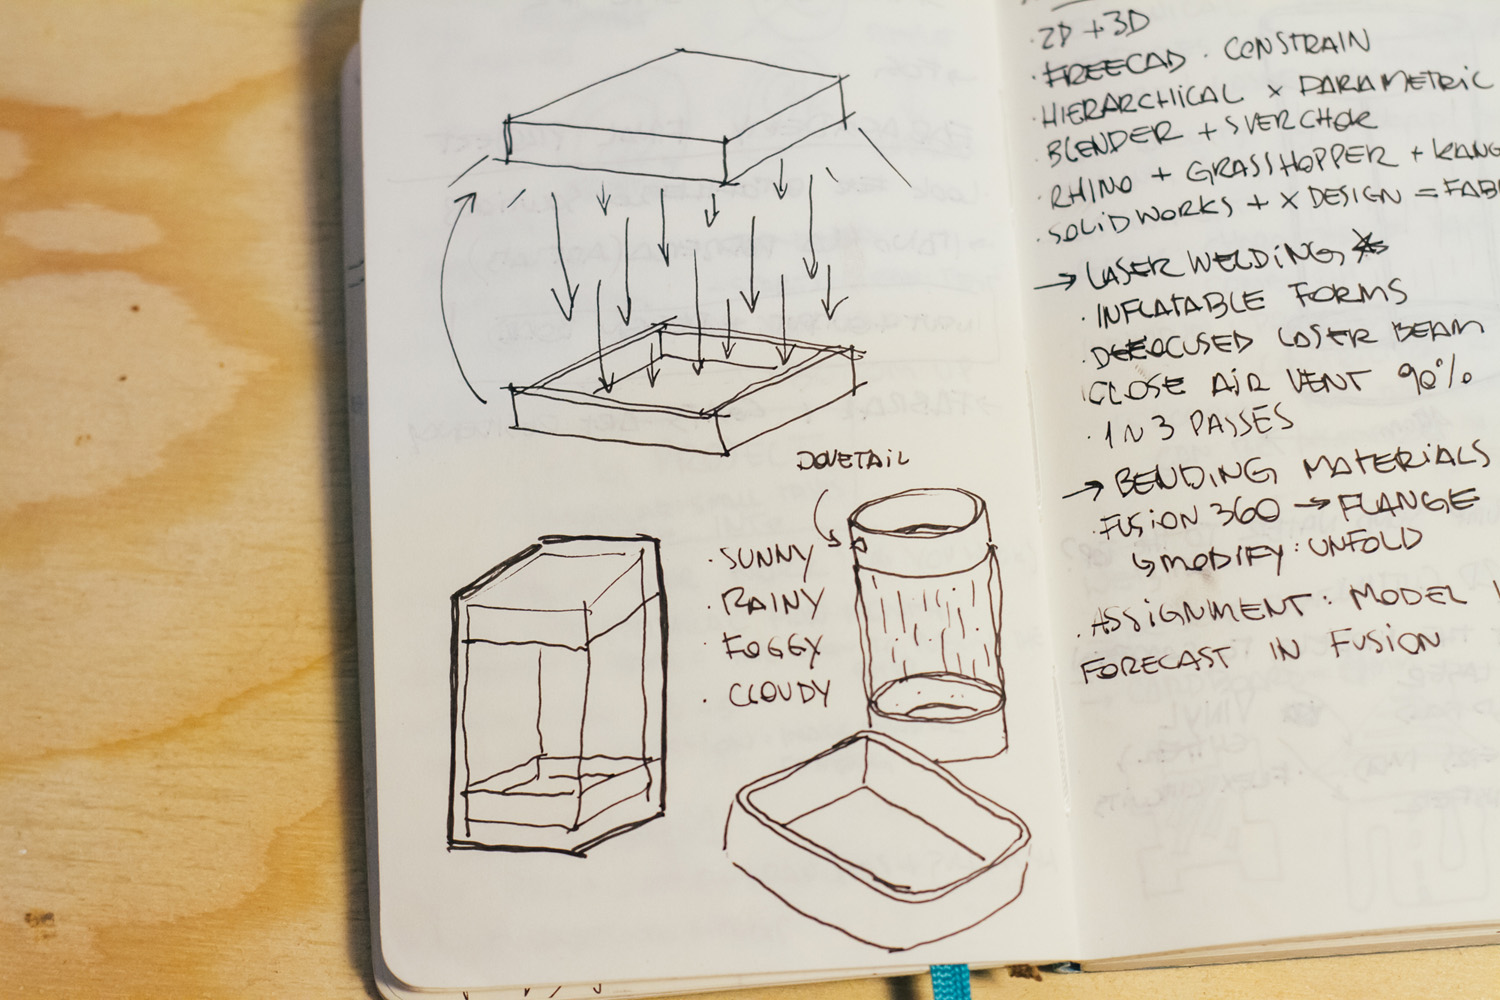 DOVETAIL
· SUNNY
· RAINY
· FOGGY
· CLOUDY
· 2D + 3D
· FREECAD · CONSTRAIN
HIERARCHICAL × PARAMETRIC
· BLENDER + SVERCHOK
· RHINO + GRASSHOPPER +
· SOLIDWORKS + X DESIGN =
→ LASER WELDING
· INFLATABLE FORMS
· DEFOCUSED LASER BEAM
· CLOSE AIR VENT 90%
· 1 N 3 PASSES
→ BENDING MATERIALS
· FUSION 360 → FLANGE
↳ MODIFY: UNFOLD
· ASSIGNMENT: MODEL
FORECAST IN FUSION